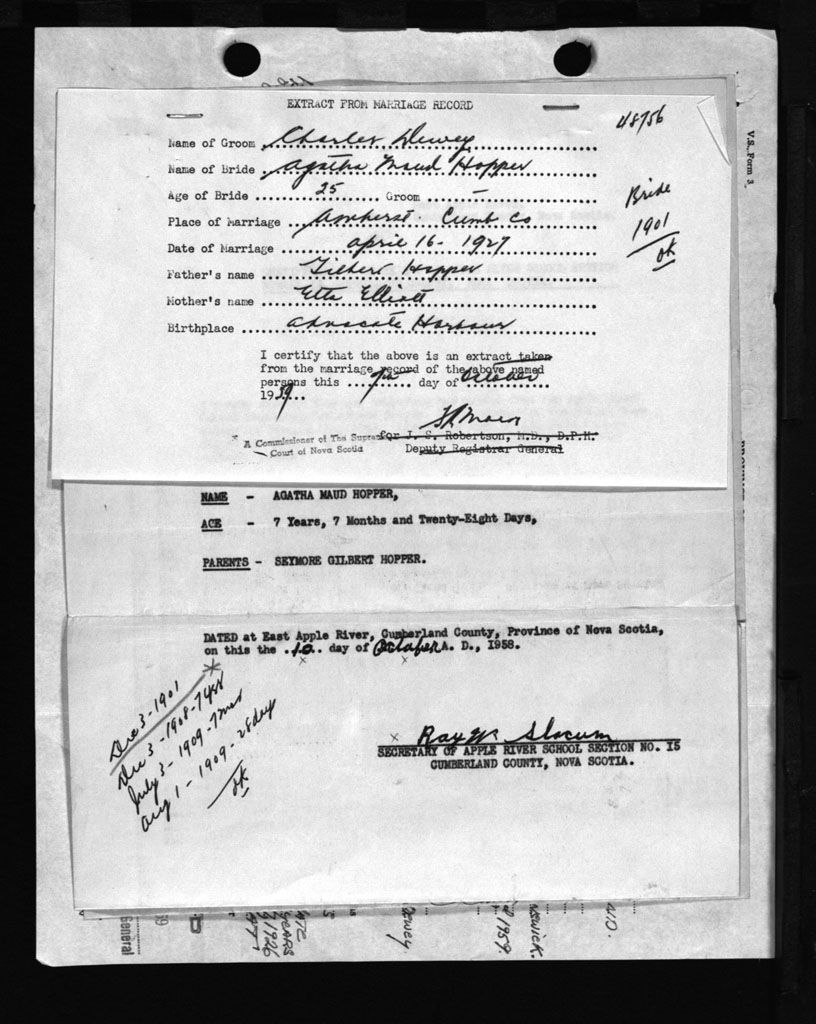 EXTRACT FROM MARRIAGE RECORD
48756
V.S. Form 3
Name of Groom Charles Dewey
Name of Bride Agatha Maud Hopper
Bride
1901
ok
Age of Bride 25 Groom —
Place of Marriage Amherst Cumb Co
Date of Marriage April 16 - 1927
Father's name Gilbert Hopper
Mother's name Etta Elliott
Birthplace Advocate Harbour
I certify that the above is an extract taken
from the marriage record of the above named
persons this 7th day of October
1959
for J. S. Robertson, M.D., D.P.H.
Deputy Registrar General
A Commissioner of The Supreme
Court of Nova Scotia
NAME - AGATHA MAUD HOPPER,
AGE - 7 Years, 7 Months and Twenty-Eight Days,
PARENTS - SEYMORE GILBERT HOPPER.
DATED at East Apple River, Cumberland County, Province of Nova Scotia,
on this the 10 day of October A. D., 1958.
Dec 3 - 1901
Dec 3 - 1908 - 7 yrs
July 3 - 1909 - 7 mos
Aug 1 - 1909 - 28 day
ok
Ray W. Slocum
SECRETARY OF APPLE RIVER SCHOOL SECTION NO. 15
CUMBERLAND COUNTY, NOVA SCOTIA.
General
YEARS
1926
Dewey.
1959.